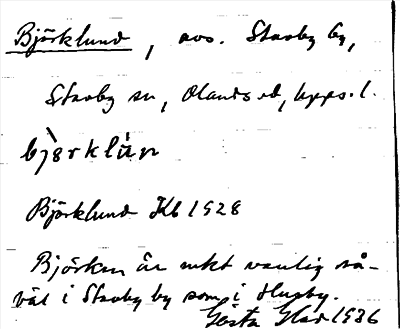 Björklund, avs. Stavby by,
Stavby sn, Olands hd, Upps. l.
bjò̀rklùn
Björklund Kb 1928
Björken är mkt vanlig så-
väl i Stavby by som i Husby.
Gösta 1936